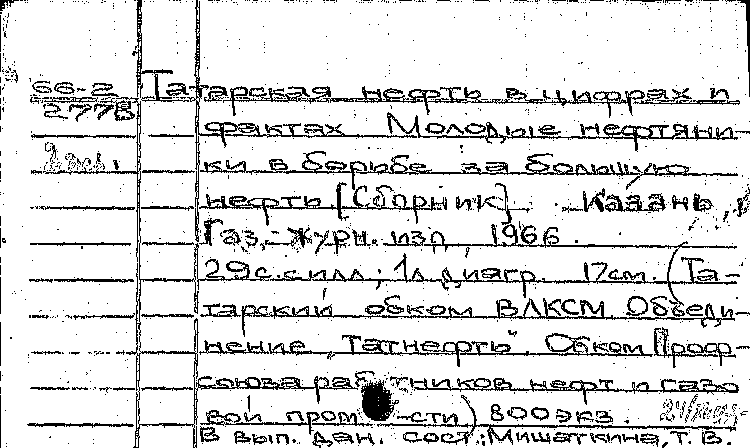 66-2 Татарская нефть в цифрах и
2778 фактах Молодые нефтяни-
2 экз. ки в борьбе за большую
нефть [Сборник] Казань,
Газ.-журн. изд, 1966.
29с.с илл; 1л.диагр. 17см. (Та-
тарский обком ВЛКСМ Объеди-
нение "Татнефть". Обком Проф-
союза работников нефт и газо
вой пром -сти) 800экз.
В вып. дан. сост.: Мишаткина, Т. В.